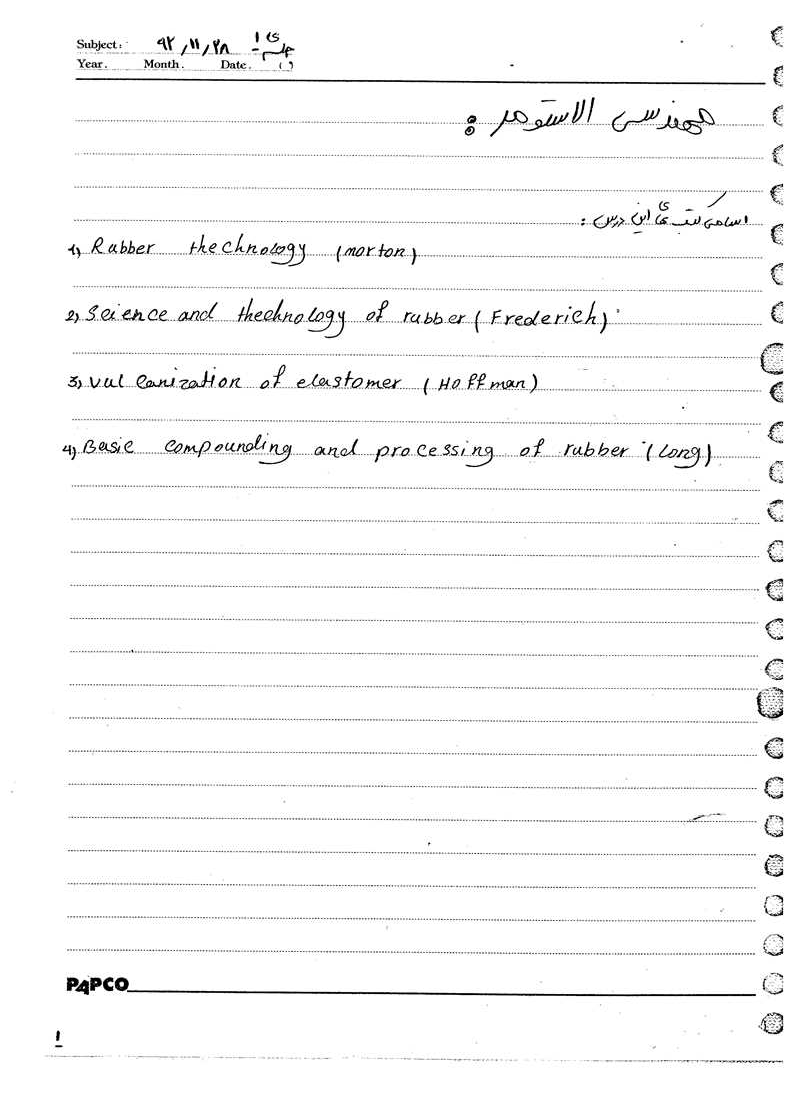 Subject: ۹۲/۱۱/۲۸ جلسه‌ی ۱
Year. Month. Date. ( )
مهندسی الاستومر :
اسامی کتب‌های این درس :
1) Rubber thechnology (morton)
2) Science and thechnology of rubber (Frederich)
3) Vulcanization of elastomer (Hoffman)
4) Basic compounding and processing of rubber (Long)
PAPCO
۱